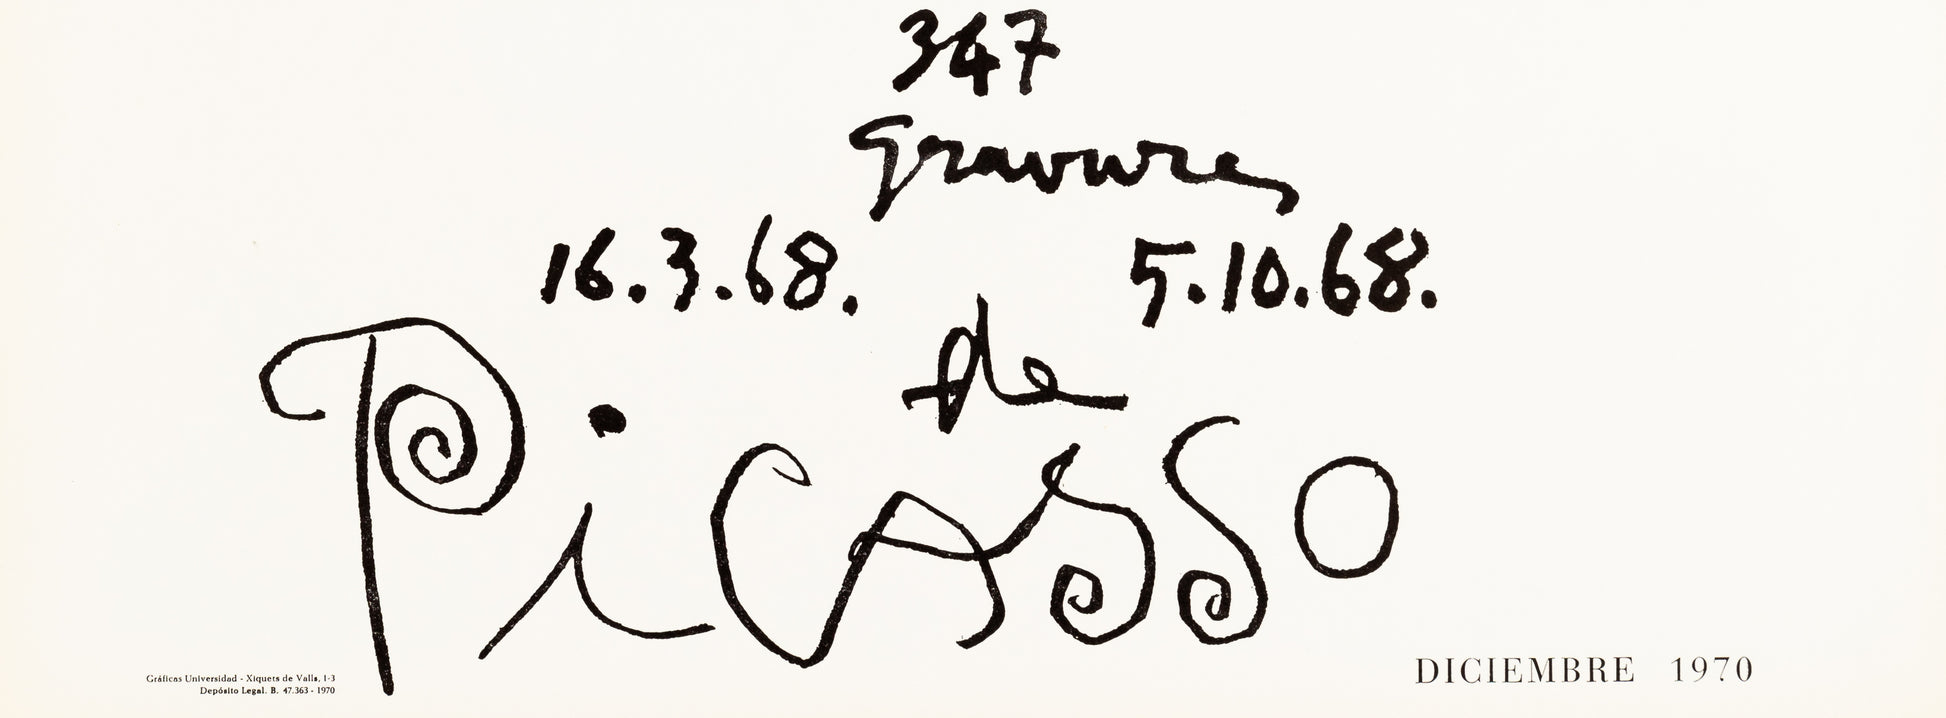 347
gravures
16.3.68. 5.10.68.
de
Picasso
Gráficas Universidad - Xiquets de Valls, 1-3
Depósito Legal. B. 47.363 - 1970
DICIEMBRE 1970